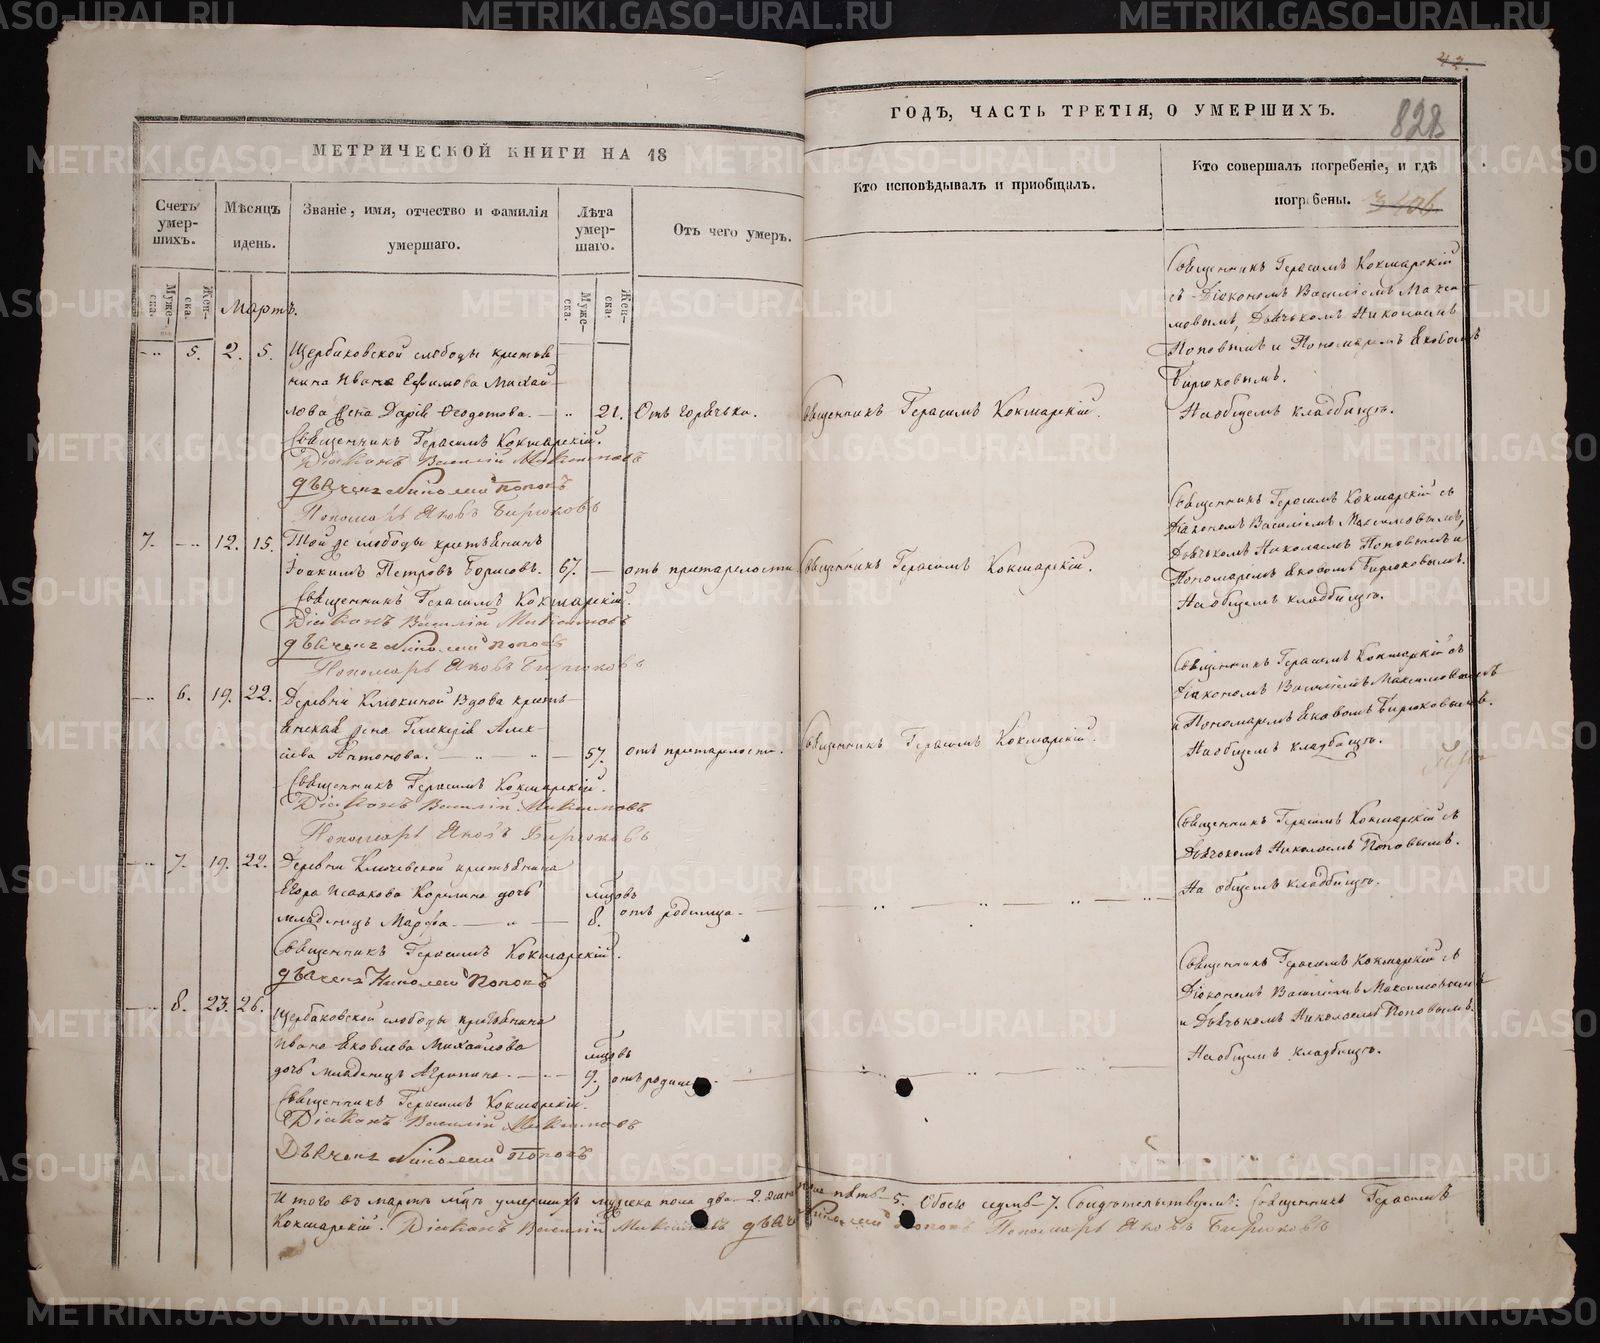 МЕТРИЧЕСКОЙ КНИГИ НА 18
ГОДЪ, ЧАСТЬ ТРЕТІЯ, О УМЕРШИХЪ.
42.
828
Счетъ умер-шихъ.
Муже-ска.
Жен-ска.
Мѣсяцъ идень.
Званіе, имя, отчество и фамилія умершаго.
Лѣта умер-шаго.
Муже-ска.
Жен-ска.
Отъ чего умеръ.
Кто исповѣдывалъ и приобщалъ.
Кто совершалъ погребеніе, и гдѣ погребены.
Мартъ.
5. 2. 5. Щербаковской слободы крестья
нина Ивана Ефимова Михай
лова жена Дарія Ѳеодотова. — 21. Отъ горячки. Священникъ Герасимъ Кокшарскій.
Священникъ Герасимъ Кокшарскій
съ Діакономъ Василіемъ Макси
мовымъ, Дьячькомъ Николаемъ
Поповымъ и Пономаремъ Яковомъ
Бирюковымъ.
На общемъ кладбищѣ.
Священникъ Герасимъ Кокшарскій.
Діаконъ Василій Максимовъ
Дьячекъ Николай Поповъ
Пономарь Яковъ Бирюковъ
7. 12. 15. Той же слободы крестьянинъ
Іоакимъ Петровъ Борисовъ. 67. — отъ престарелости Священникъ Герасимъ Кокшарскій.
Священникъ Герасимъ Кокшарскій съ
Діакономъ Василіемъ Максимовымъ,
Дьячькомъ Николаемъ Поповымъ и
Пономаремъ Яковомъ Бирюковымъ.
На общемъ кладбищѣ.
Священникъ Герасимъ Кокшарскій.
Діаконъ Василій Максимовъ
Дьячекъ Николай Поповъ
Пономарь Яковъ Бирюковъ
6. 19. 22. Деревни Клюкиной Вдова кресть
янская жена Гликерія Алек
сіева Антонова. — 57. отъ престарелости. Священникъ Герасимъ Кокшарскій.
Священникъ Герасимъ Кокшарскій съ
Діакономъ Василіемъ Максимовымъ
и Пономаремъ Яковомъ Бирюковымъ.
На общемъ кладбищѣ.
Священникъ Герасимъ Кокшарскій.
Діаконъ Василій Максимовъ
Пономарь Яковъ Бирюковъ
7. 19. 22. Деревни Ключевской крестьянина
Егора Исаакова Корелина дочь
младенецъ Марфа. — мцовъ 8. отъ родимца.
Священникъ Герасимъ Кокшарскій съ
Дьячькомъ Николаемъ Поповымъ.
На общемъ кладбищѣ.
Священникъ Герасимъ Кокшарскій.
Дьячекъ Николай Поповъ
8. 23. 26. Щербаковской слободы крестьянина
Ивана Яковлева Михайлова
дочь младенецъ Агрипина. — мцовъ 9. отъ родимца.
Священникъ Герасимъ Кокшарскій съ
Діакономъ Василіемъ Максимовымъ
и Дьячькомъ Николаемъ Поповымъ.
На общемъ кладбищѣ.
Священникъ Герасимъ Кокшарскій.
Діаконъ Василій Максимовъ
Дьячекъ Николай Поповъ
Итого въ мартѣ мцѣ умершихъ мужеска пола два — 2. женска пола пять — 5. Обоего седмь — 7. Свидѣтельствуемъ: Священникъ Герасимъ
Кокшарскій. Діаконъ Василій Максимовъ Дьячекъ Николай Поповъ Пономарь Яковъ Бирюковъ
METRIKI.GASO-URAL.RU